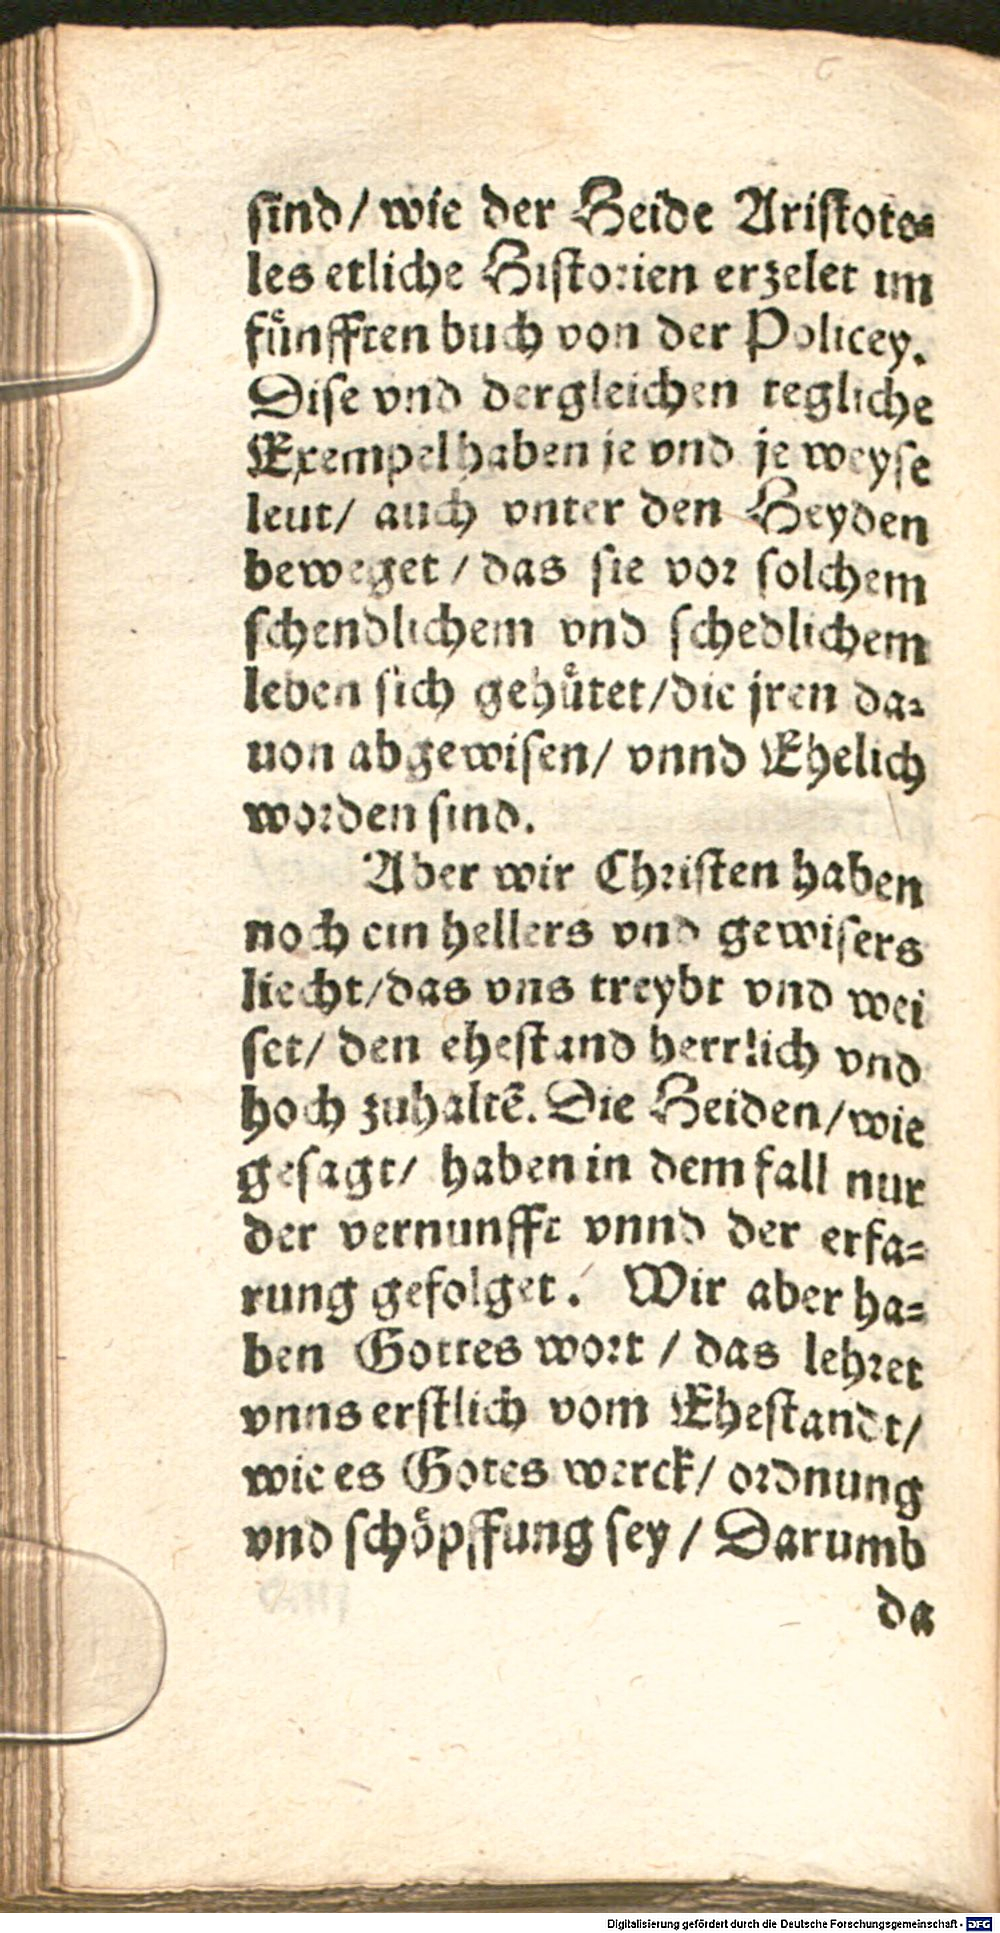 sind/ wie der Heide Aristote⸗
les etliche Historien erzelet im
fuͤnfften buch von der Policey.
Dise vnd dergleichen tegliche
Exempel haben je vnd je weyse
leut/ auch vnter den Heyden
beweget / das sie vor solchem
schendlichem vnd schedlichem
leben sich gehuͤtet/die jren da⸗
uon abgewisen/ vnnd Ehelich
worden sind.
Aber wir Christen haben
noch ein hellers vnd gewisers
liecht/das vns treybt vnd wei
set/ den ehestand herrlich vnd
hoch zuhaltẽ. Die Heiden/wie
gesagt/ haben in dem fall nur
der vernunfft vnnd der erfa⸗
rung gefolget. Wir aber ha⸗
ben Gottes wort / das lehret
vnns erstlich vom Ehestandt/
wie es Gotes werck/ ordnung
vnd schoͤpffung sey / Darumb
da
Digitalisierung gefördert durch die Deutsche Forschungsgemeinschaft - DFG